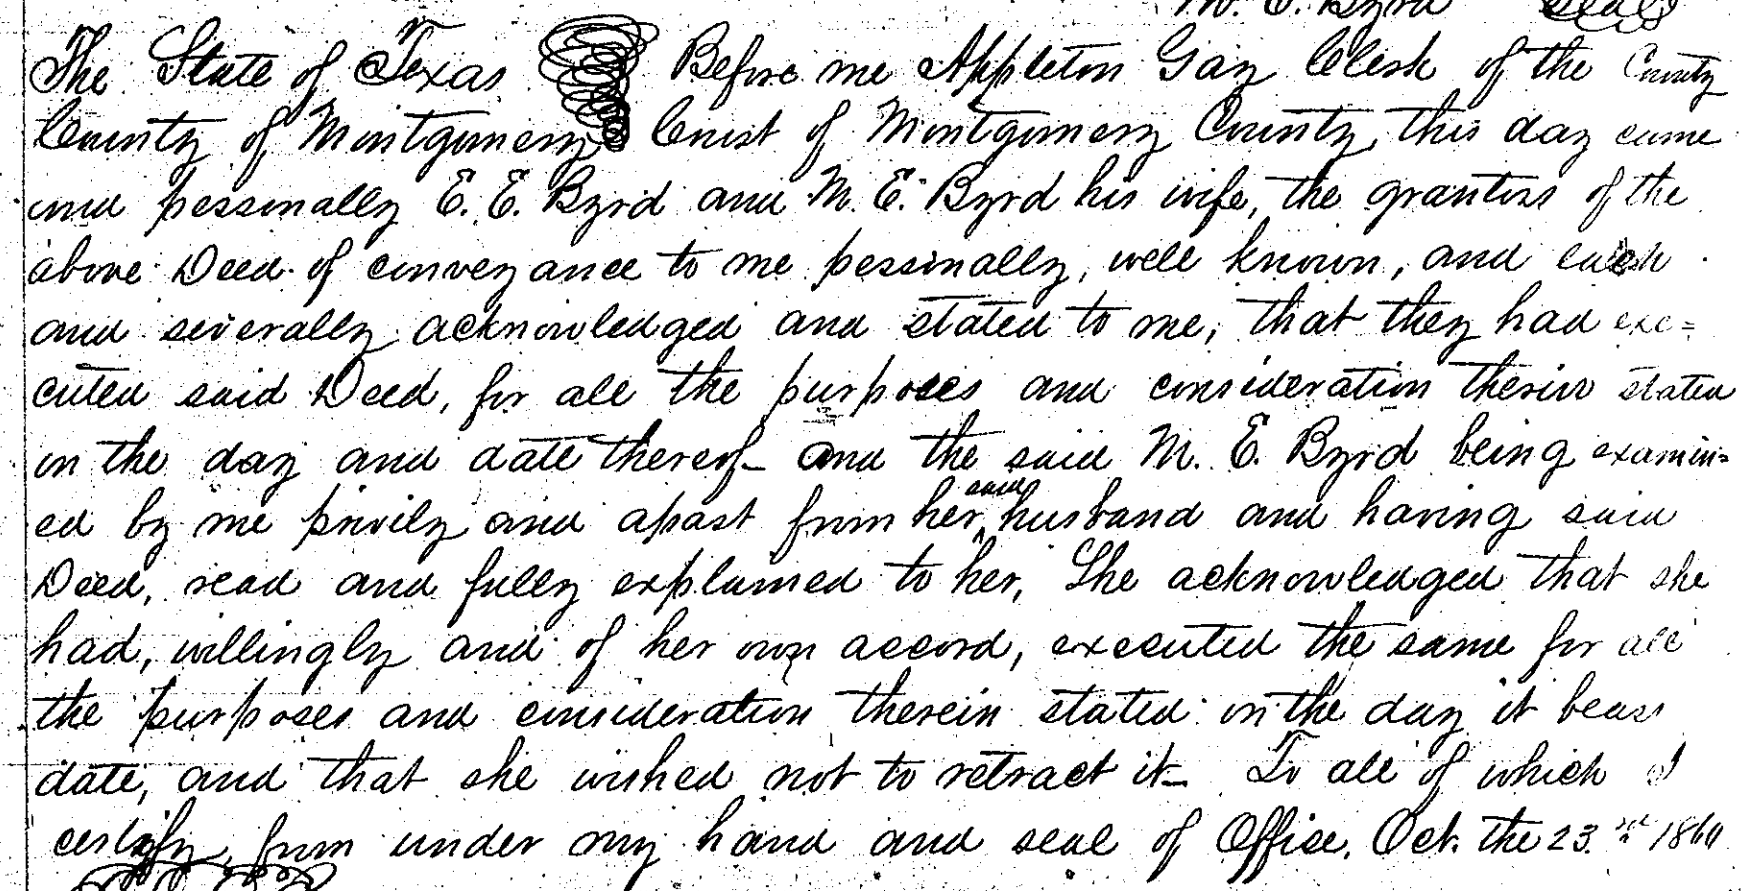 M. E. Byrd Seal
The State of Texas Before me Appleton Gay Clerk of the County
County of Montgomery Court of Montgomery County, this day came
and personally E. E. Byrd and M. E. Byrd his wife, the grantors of the
above Deed of conveyance to me personally, well known, and each
and severally acknowledged and stated to me, that they had exe=
cuted said Deed, for all the purposes and consideration therein stated
on the day and date thereof - and the said M. E. Byrd being examin=
ed by me privily and apart from her said husband and having said
Deed, read and fully explained to her, She acknowledged that she
had, willingly and of her own accord, executed the same for all
the purposes and consideration therein stated on the day it bears
date, and that she wished not to retract it - To all of which I
certify, from under my hand and seal of Office. Oct. the 23rd